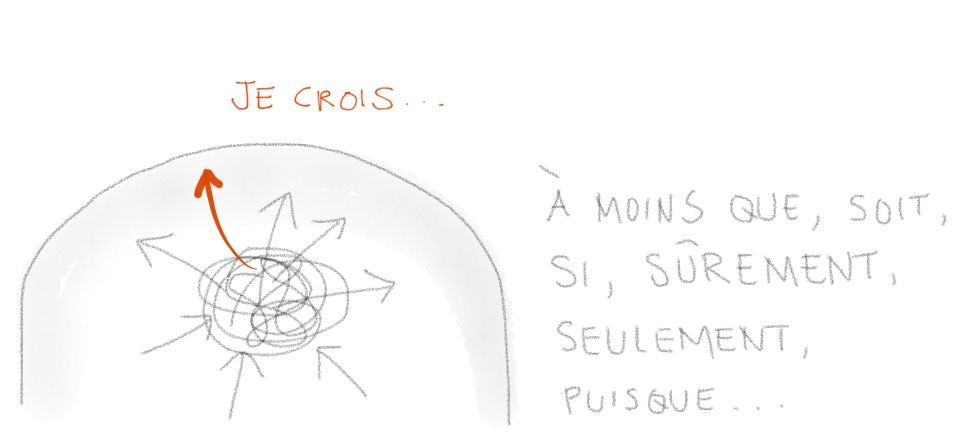 JE CROIS...
À MOINS QUE, SOIT,
SI, SÛREMENT,
SEULEMENT,
PUISQUE...